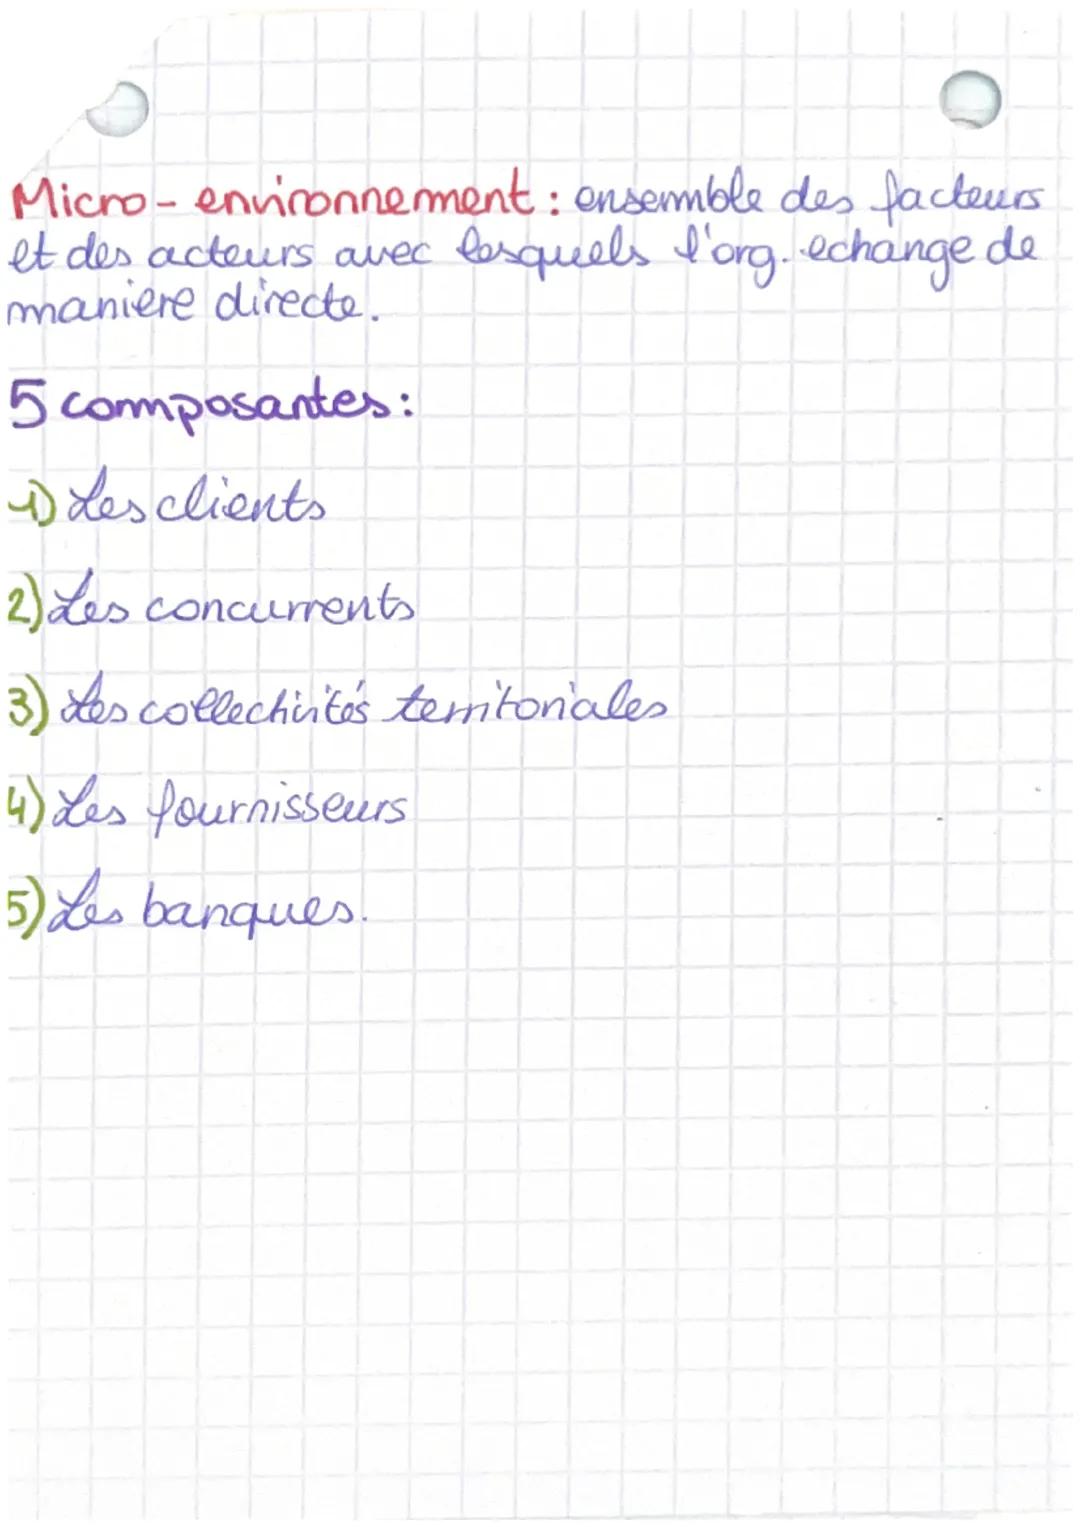 Micro-environnement : ensemble des facteurs
et des acteurs avec lesquels l'org. echange de
maniere directe.
5 composantes :
1) Les clients
2) Les concurrents
3) Les collectivités territoriales
4) Les fournisseurs
5) Les banques.